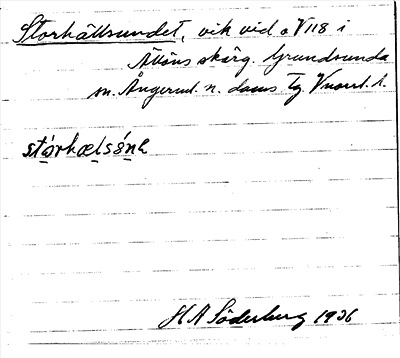 Storhällsundet, vik vid o V118 i
skärg. Grundsunda
sn. Ångerml. n. doms. tg. Vnorrl. l.
stórhœlsúnə
H A Söderberg 1936